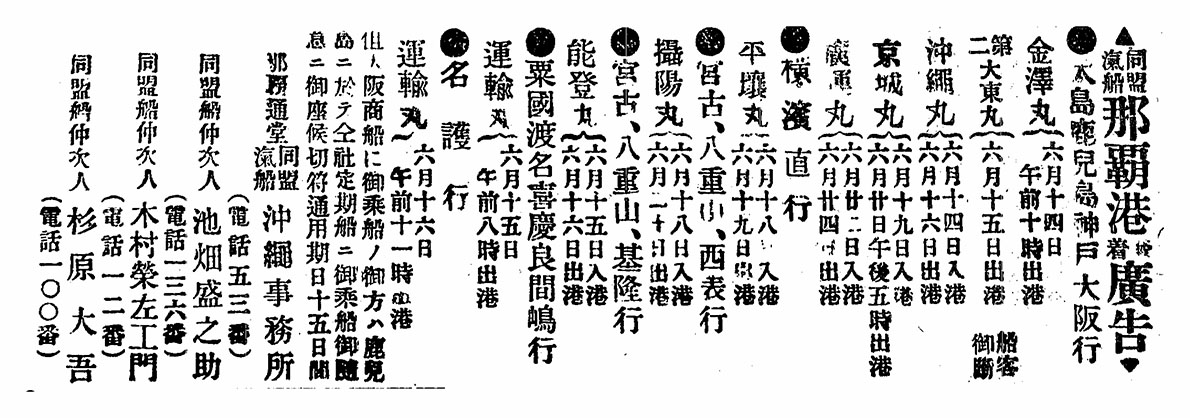 ▲同盟汽船那覇港發着廣告▼
●大島鹿兒島神戸大阪行
金澤丸 六月十四日午前十時出港
第二大東丸 六月十五日出港 船客御斷
沖繩丸 六月十四日入港 六月十六日出港
京城丸 六月十九日入港 六月廿日午後五時出港
運丸 六月廿二日入港 六月廿四日出港
●横濱直行
平壤丸 六月十八日入港 六月十九日出港
●宮古、八重山、西表行
攝陽丸 六月十八日入港 六月二十日出港
●宮古、八重山、基隆行
能登丸 六月十五日入港 六月十六日出港
●粟國渡名喜慶良間嶋行
運輸丸 六月十五日午前八時出港
●名護行
運輸丸 六月十六日午前十一時出港
但大阪商船に御乘船ノ御方ハ鹿兒
島ニ於テ仝社定期船ニ御乘船御隨
意ニ御座候切符通用期日十五日間
那覇通堂 同盟汽船 沖繩事務所
(電話五三番)
同盟船仲次人 池畑盛之助
(電話一三六番)
同盟船仲次人 木村榮左工門
(電話一二番)
同盟船仲次人 杉原大吾
(電話一〇〇番)